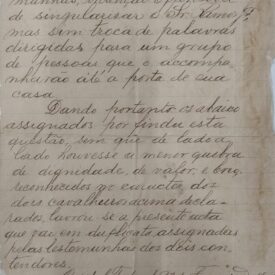 de singularisar o Sr.
mas sim troca de palavras
dirigidas para um grupo
de pessoas que o acompa
nharão até a porta de sua
casa.
Dando portanto os abaixo
assignados por findu esta
questão, sem que de lado a
lado houvesse a menor quebra
de dignidade, de valôr, e
reconhecidos o caracter dos
dois cavalheiros acima decla-
rados, lavrou se a presente acta
que vai em duplicata assignadas
pelas testemunhas dos dois con-
tendores.